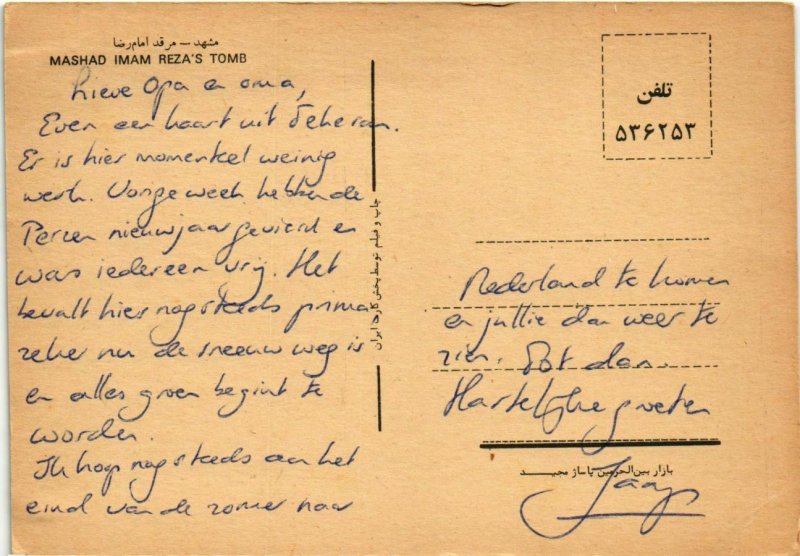 مشهد – مرقد امام رضا
MASHAD IMAM REZA'S TOMB
Lieve Opa en oma,
Even een kaart uit Teheran.
Er is hier momenteel weinig
werk. Vorige week hebben de
Perzen nieuwjaar gevierd en
was iedereen vrij. Het
bevalt hier nog steeds prima
zeker nu de sneeuw weg is
en alles groen begint te
worden.
Ik hoop nog steeds aan het
eind van de zomer naar
چاپ و فیلم توسط پخش کارت ایران
تلفن
۵۳۶۲۵۳
Nederland te komen
en jullie dan weer te
zien. Tot dan.
Hartelijke groeten
بازار بین‌الحرمین پاساژ مجید
Jaap